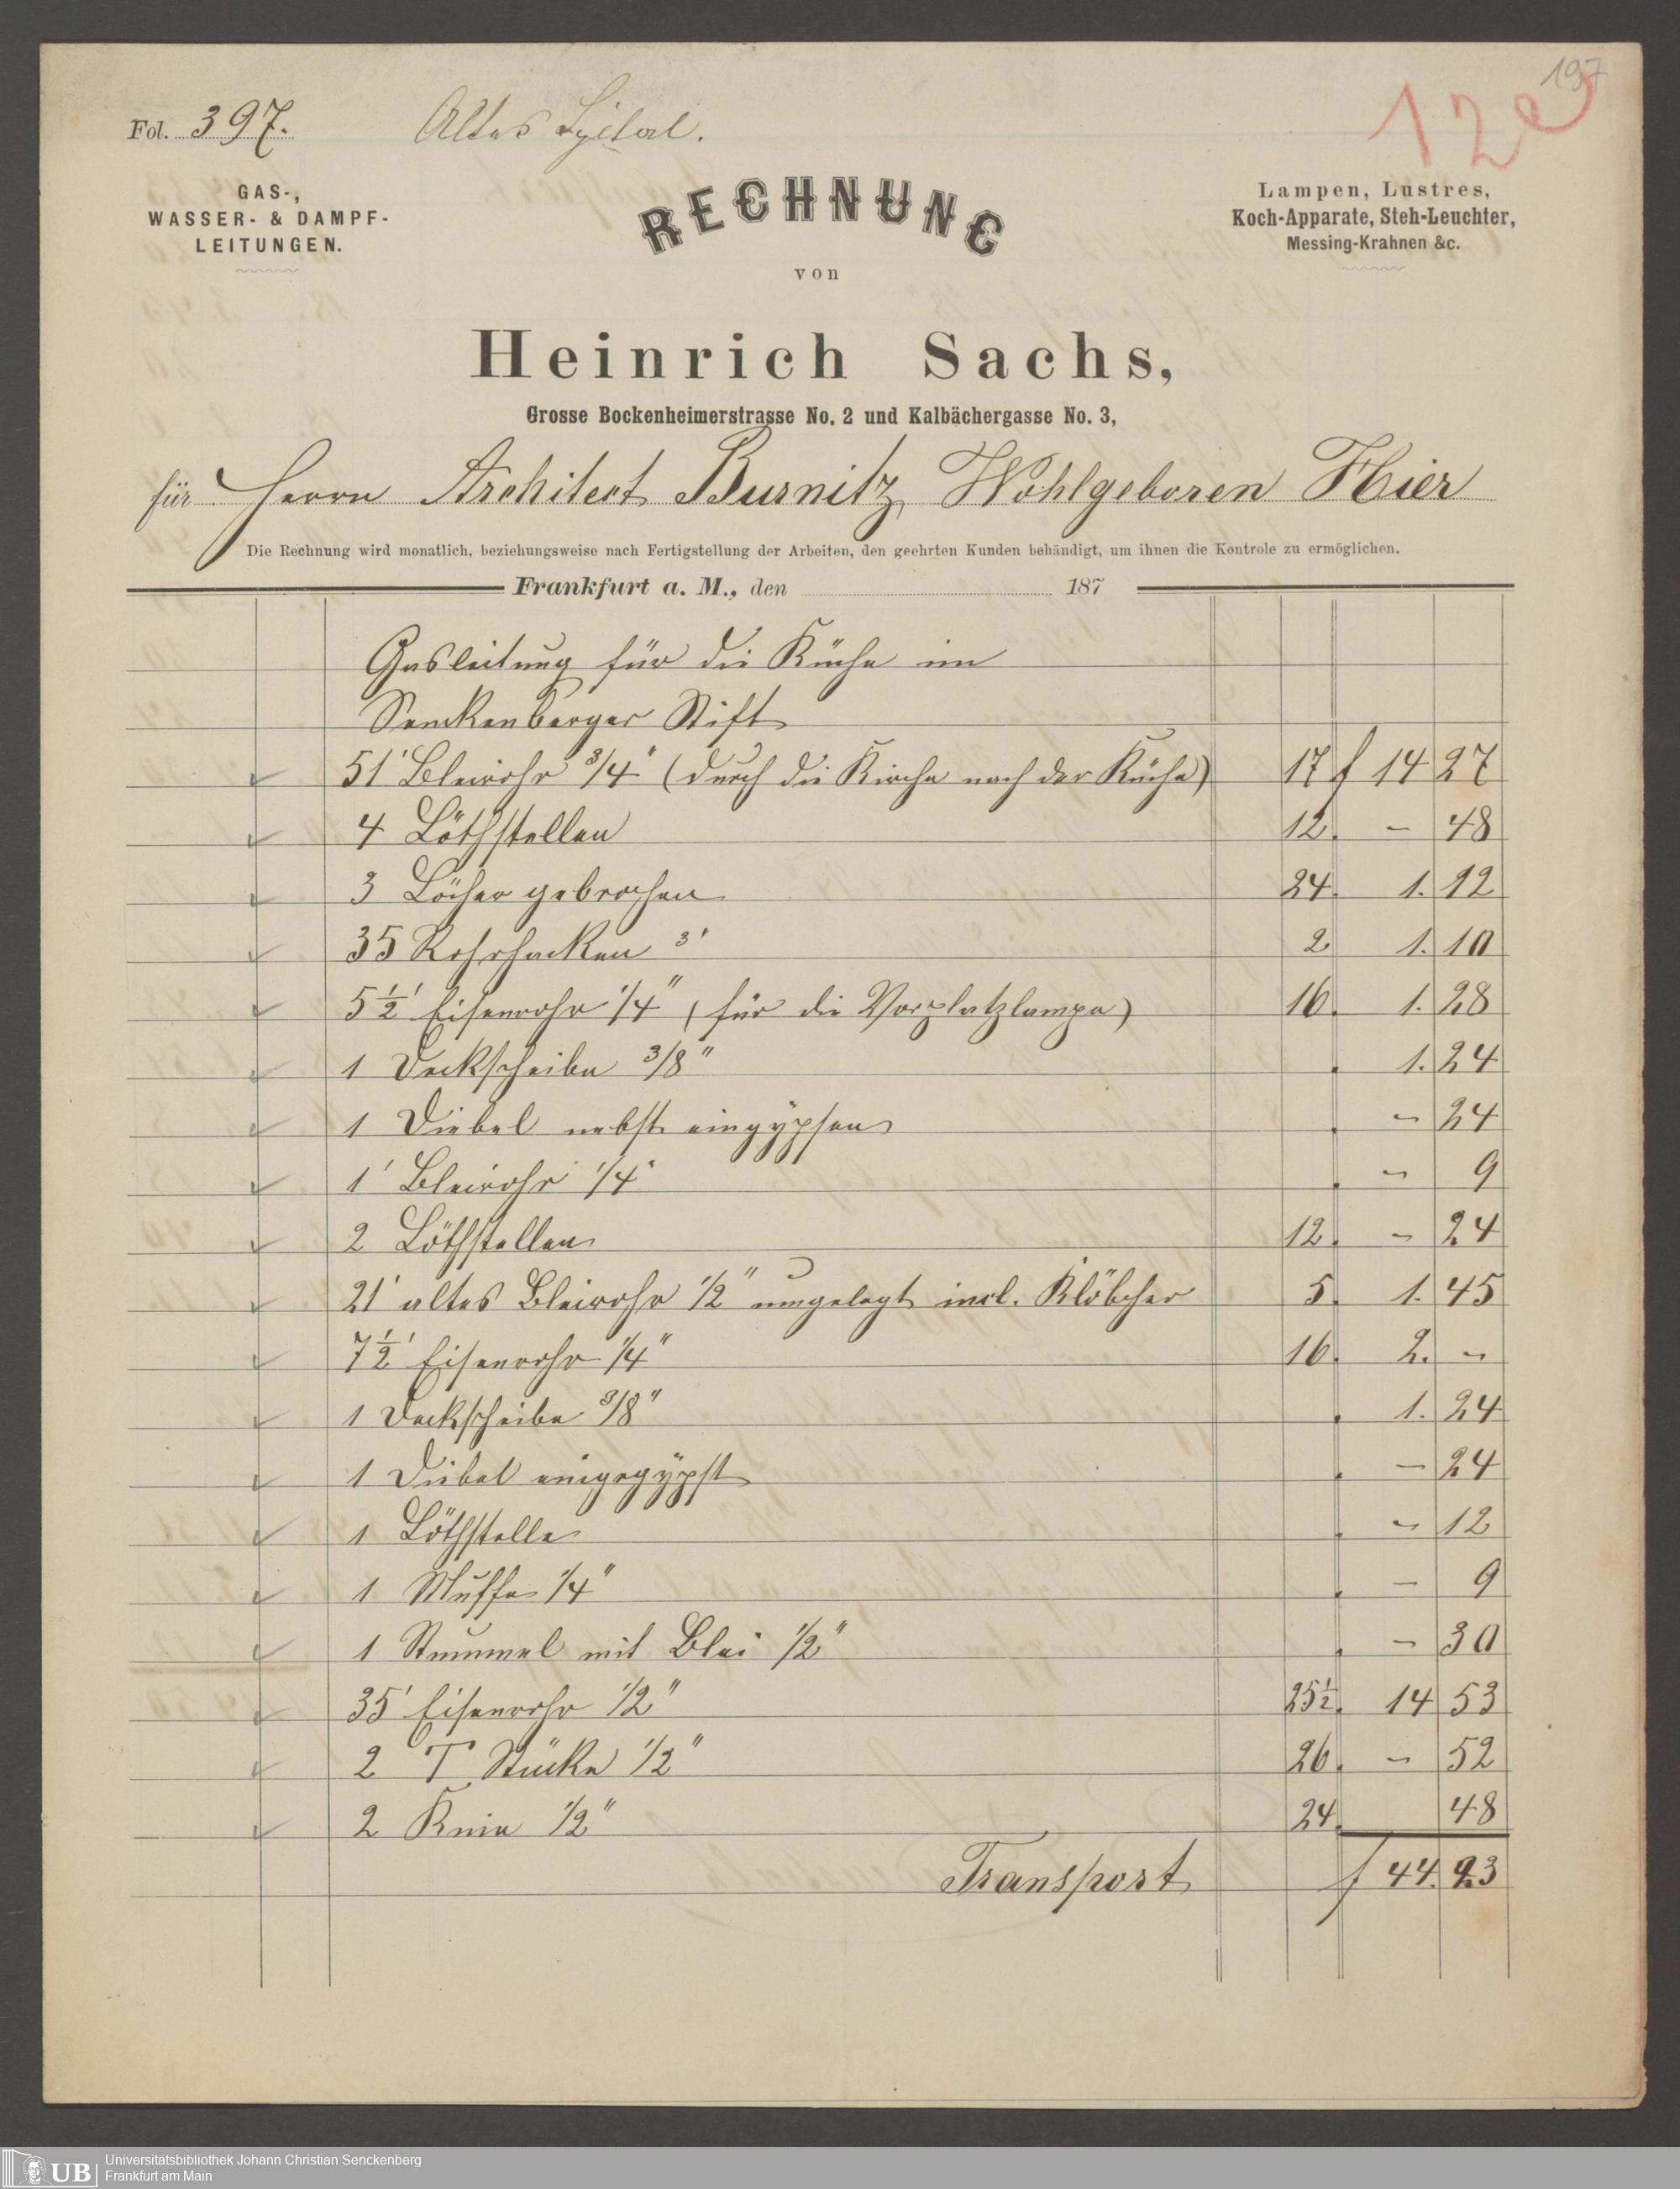 197
12e
Fol. 397.
Altes Spital.
GAS-,
WASSER- & DAMPF-
LEITUNGEN.
RECHNUNG
von
Lampen, Lustres,
Koch-Apparate, Steh-Leuchter,
Messing-Krahnen &c.
Heinrich Sachs,
Grosse Bockenheimerstrasse No. 2 und Kalbächergasse No. 3,
für Herrn Architect Burnitz, Wohlgeboren Hier
Die Rechnung wird monatlich, beziehungsweise nach Fertigstellung der Arbeiten, den geehrten Kunden behändigt, um ihnen die Kontrole zu ermöglichen.
Frankfurt a. M., den 187
Gasleitung für die Küche im
Senckenberger Stift
51' Bleirohr 3/4" (durch die Kirche nach der Küche) 17 f 14 27
4 Löthstellen 12. - 48
3 Löcher gebrochen 24. 1. 12
35 Rohrhacken 3' 2 1. 10
5 1/2' Eisenrohr 1/4" (für die Vorplatzlampe) 16. 1. 28
1 Deckscheibe 3/8" . 1. 24
1 Diebel nebst eingypsen . - 24
1' Bleirohr 1/4" . - 9
2 Löthstellen 12. - 24
21' altes Bleirohr 1/2" umgelegt incl. Klöbcher 5. 1. 45
7 1/2' Eisenrohr 1/4" 16. 2. -
1 Deckscheibe 3/8" . 1. 24
1 Diebel eingegypst . - 24
1 Löthstelle . - 12
1 Muffe 1/4" . - 9
1 Stummel mit Blei 1/2" . - 30
35' Eisenrohr 1/2" 25 1/2. 14 53
2 T Stücke 1/2" 26. - 52
2 Knie 1/2" 24. 48
Transport f 44. 23
UB
Universitätsbibliothek Johann Christian Senckenberg
Frankfurt am Main